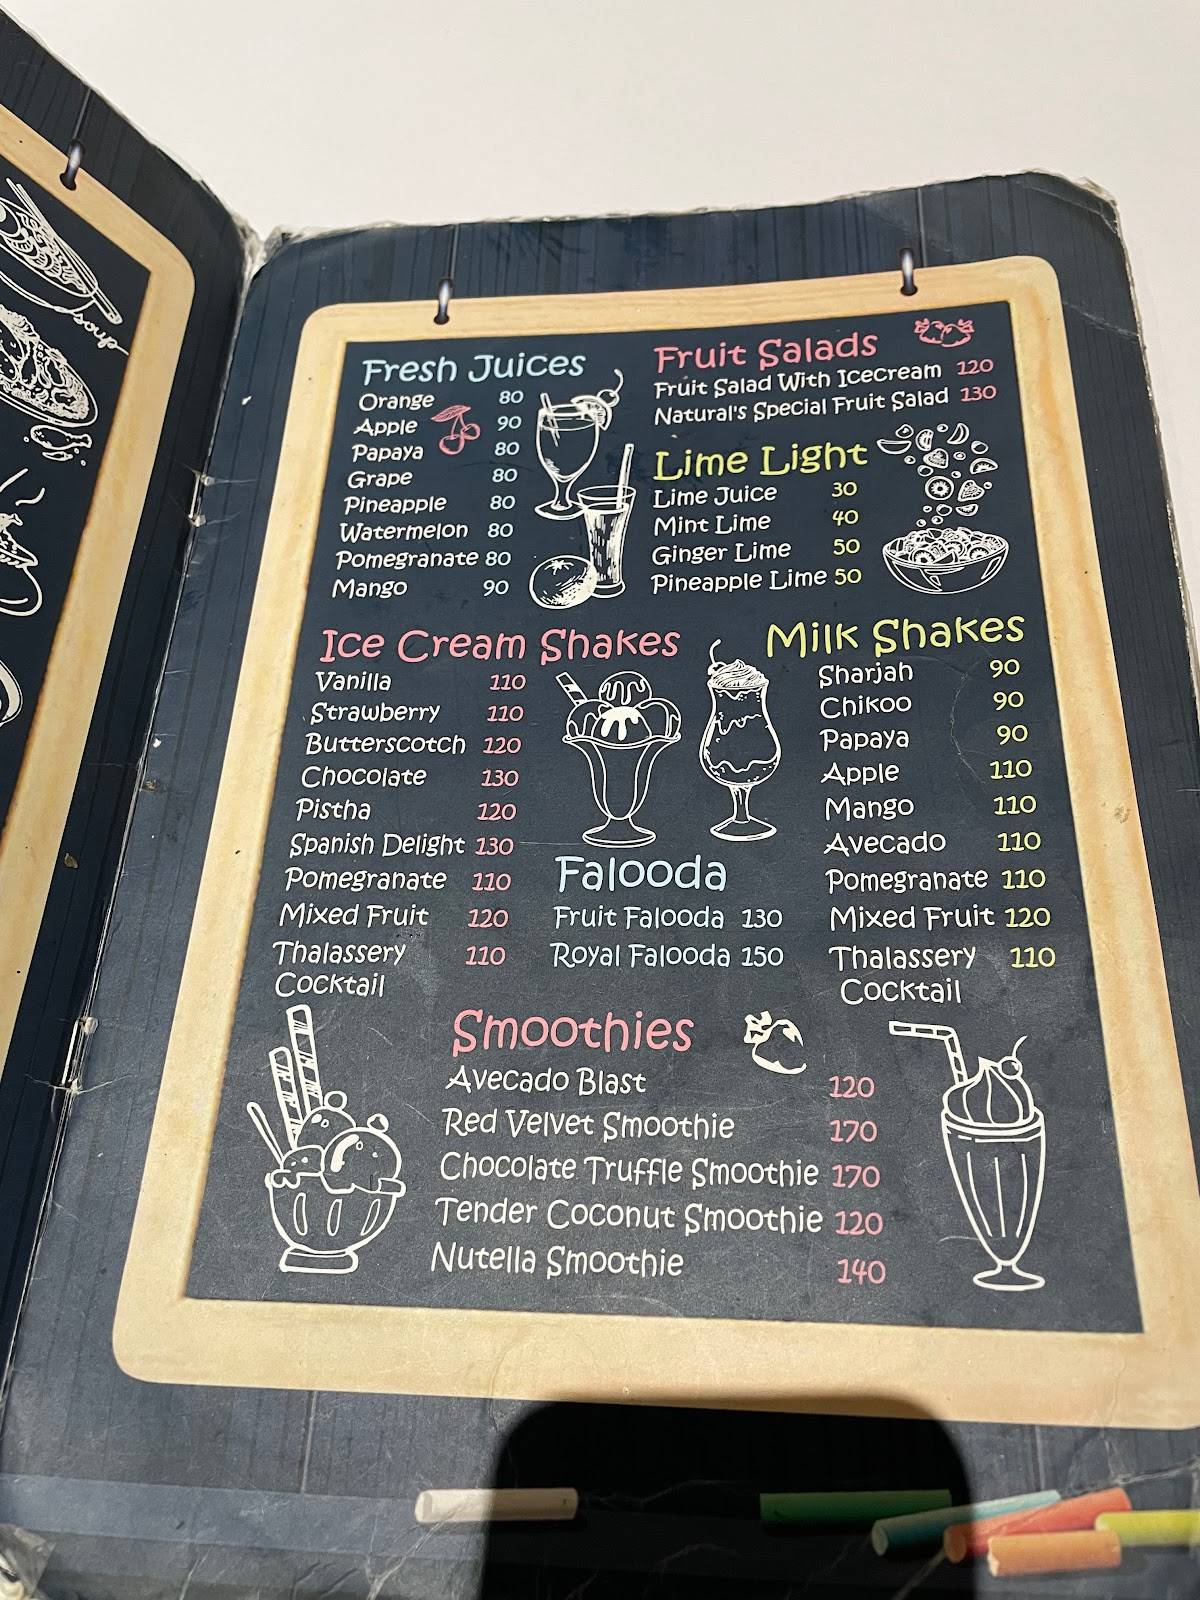 soup
Fresh Juices
Orange 80
Apple 90
Papaya 80
Grape 80
Pineapple 80
Watermelon 80
Pomegranate 80
Mango 90
Fruit Salads
Fruit Salad With Icecream 120
Natural's Special Fruit Salad 130
Lime Light
Lime Juice 30
Mint Lime 40
Ginger Lime 50
Pineapple Lime 50
Ice Cream Shakes
Vanilla 110
Strawberry 110
Butterscotch 120
Chocolate 130
Pistha 120
Spanish Delight 130
Pomegranate 110
Mixed Fruit 120
Thalassery 110
Cocktail
Falooda
Fruit Falooda 130
Royal Falooda 150
Milk Shakes
Sharjah 90
Chikoo 90
Papaya 90
Apple 110
Mango 110
Avecado 110
Pomegranate 110
Mixed Fruit 120
Thalassery 110
Cocktail
Smoothies
Avecado Blast 120
Red Velvet Smoothie 170
Chocolate Truffle Smoothie 170
Tender Coconut Smoothie 120
Nutella Smoothie 140